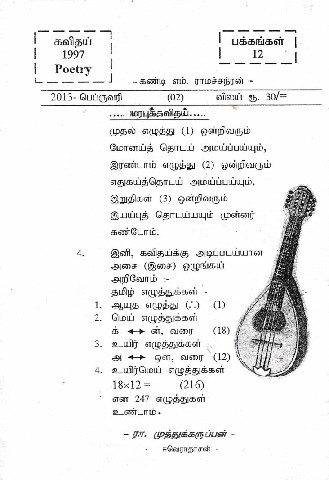 கவிதய்
1997
Poetry
பக்கங்கள்
12
- கண்டி எம். ராமச்சந்ரன் -
2013- பெப்ருவரி (02) விலய் ரூ. 30/=
..... மரபுக்கவிதய்.....
முதல் எழுத்து (1) ஒன்றிவரும்
மோனய்த் தொடய் அமய்ப்பய்யும்,
இரண்டாம் எழுத்து (2) ஒன்றிவரும்
எதுகய்த்தொடய் அமய்ப்பய்யும்,
இறுதிகள் (3) ஒன்றிவரும்
இயய்புத் தொடய்யயும் முன்னர்
கண்டோம்.
4. இனி, கவிதய்க்கு அடிப்படய்யான
அசை (இசை) ஒழுங்கய்
அறிவோம் :-
தமிழ் எழுத்துக்கள் -
1. ஆயுத எழுத்து (ஃ) (1)
2. மெய் எழுத்துக்கள்
க் ↔ ன், வரை (18)
3. உயிர் எழுத்துக்கள்
அ ↔ ஔ, வரை (12)
4. உயிர்மெய் எழுத்துக்கள்
18×12 = (216)
என 247 எழுத்துகள்
உண்டாம்.
- ரா. முத்துக்கருப்பன் -
- ஈவெராதாசன் -